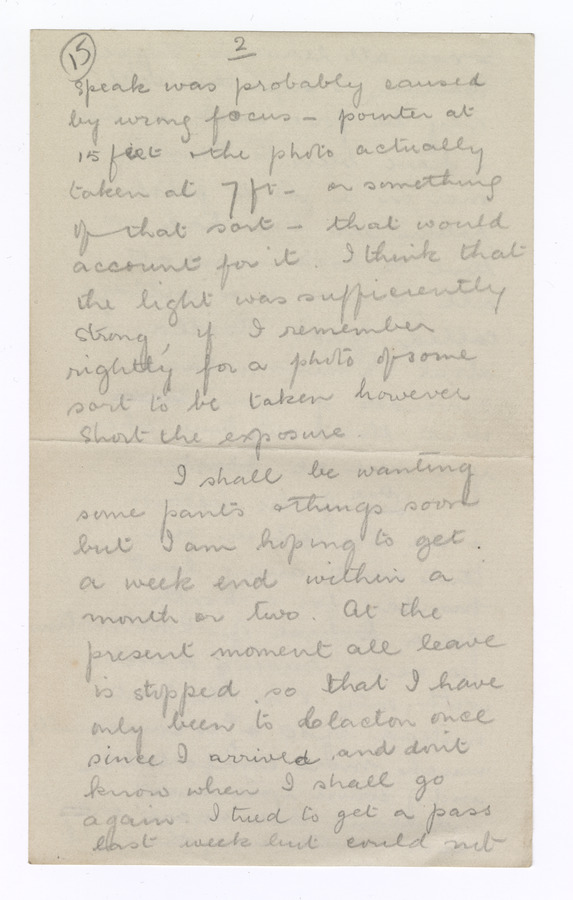 15
2
speak was probably caused
by wrong focus – pointer at
15 feet & the photo actually
taken at 7 ft – or something
of that sort – that would
account for it. I think that
the light was sufficiently
strong, if I remember
rightly for a photo of some
sort to be taken however
short the exposure.
I shall be wanting
some pants & things soon
but I am hoping to get
a week end within a
month or two. At the
present moment all leave
is stopped so that I have
only been to Clacton once
since I arrived and don't
know when I shall go
again. I tried to get a pass
last week but could not